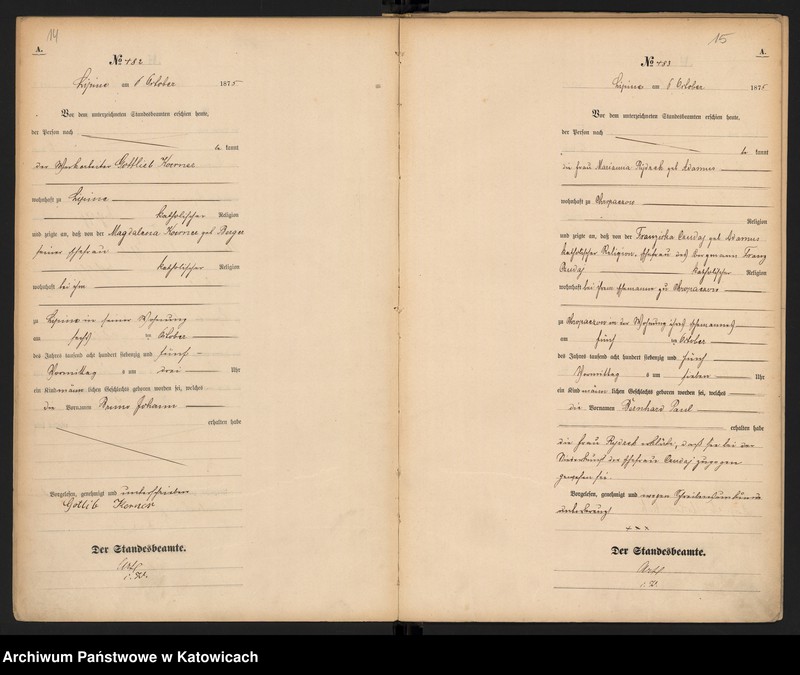 14
A.
№ 482
Lipine am 6 October 1875
Vor dem unterzeichneten Standesbeamten erschien heute,
der Person nach
be kannt
der Werkarbeiter Gottlieb Koerner
wohnhaft zu Lipine
katholischer Religion
und zeigte an, daß von der Magdalena Koerner geb
seiner Ehefrau
katholischer Religion
wohnhaft bei ihm
zu Lipine in seiner Wohnung
am sechs ten October
des Jahres tausend acht hundert siebenzig und fünf
Vormittag s um drei Uhr
ein Kind männ lichen Geschlechts geboren worden sei, welches
die Vornamen Bruno Johann
erhalten habe
Vorgelesen, genehmigt und unterschrieben
Gotlib Kerner
Der Standesbeamte.
i. V.
15
A.
№ 483
Lipine am 6 October 1875
Vor dem unterzeichneten Standesbeamten erschien heute,
der Person nach
be kannt
die Frau Marianna geb Adamus
wohnhaft zu Chropaczow
Religion
und zeigte an, daß von der Franziska geb. Adamus
katholischer Religion, Ehefrau des Bergmann Franz
katholischer Religion
wohnhaft bei ihrem Ehemanne zu Chropaczow
zu Chropaczow in der Wohnung ihres Ehemannes
am fünf ten October
des Jahres tausend acht hundert siebenzig und fünf
Vormittag s um sieben Uhr
ein Kind männ lichen Geschlechts geboren worden sei, welches
die Vornamen Bernhard Paul
erhalten habe
die Frau erklärte, daß sie bei der
Niederkunft der Ehefrau zugegen
gewesen sei
Vorgelesen, genehmigt und wegen Schreibensunkunde
unterkreuzt
+ + +
Der Standesbeamte.
i. V.
Archiwum Państwowe w Katowicach